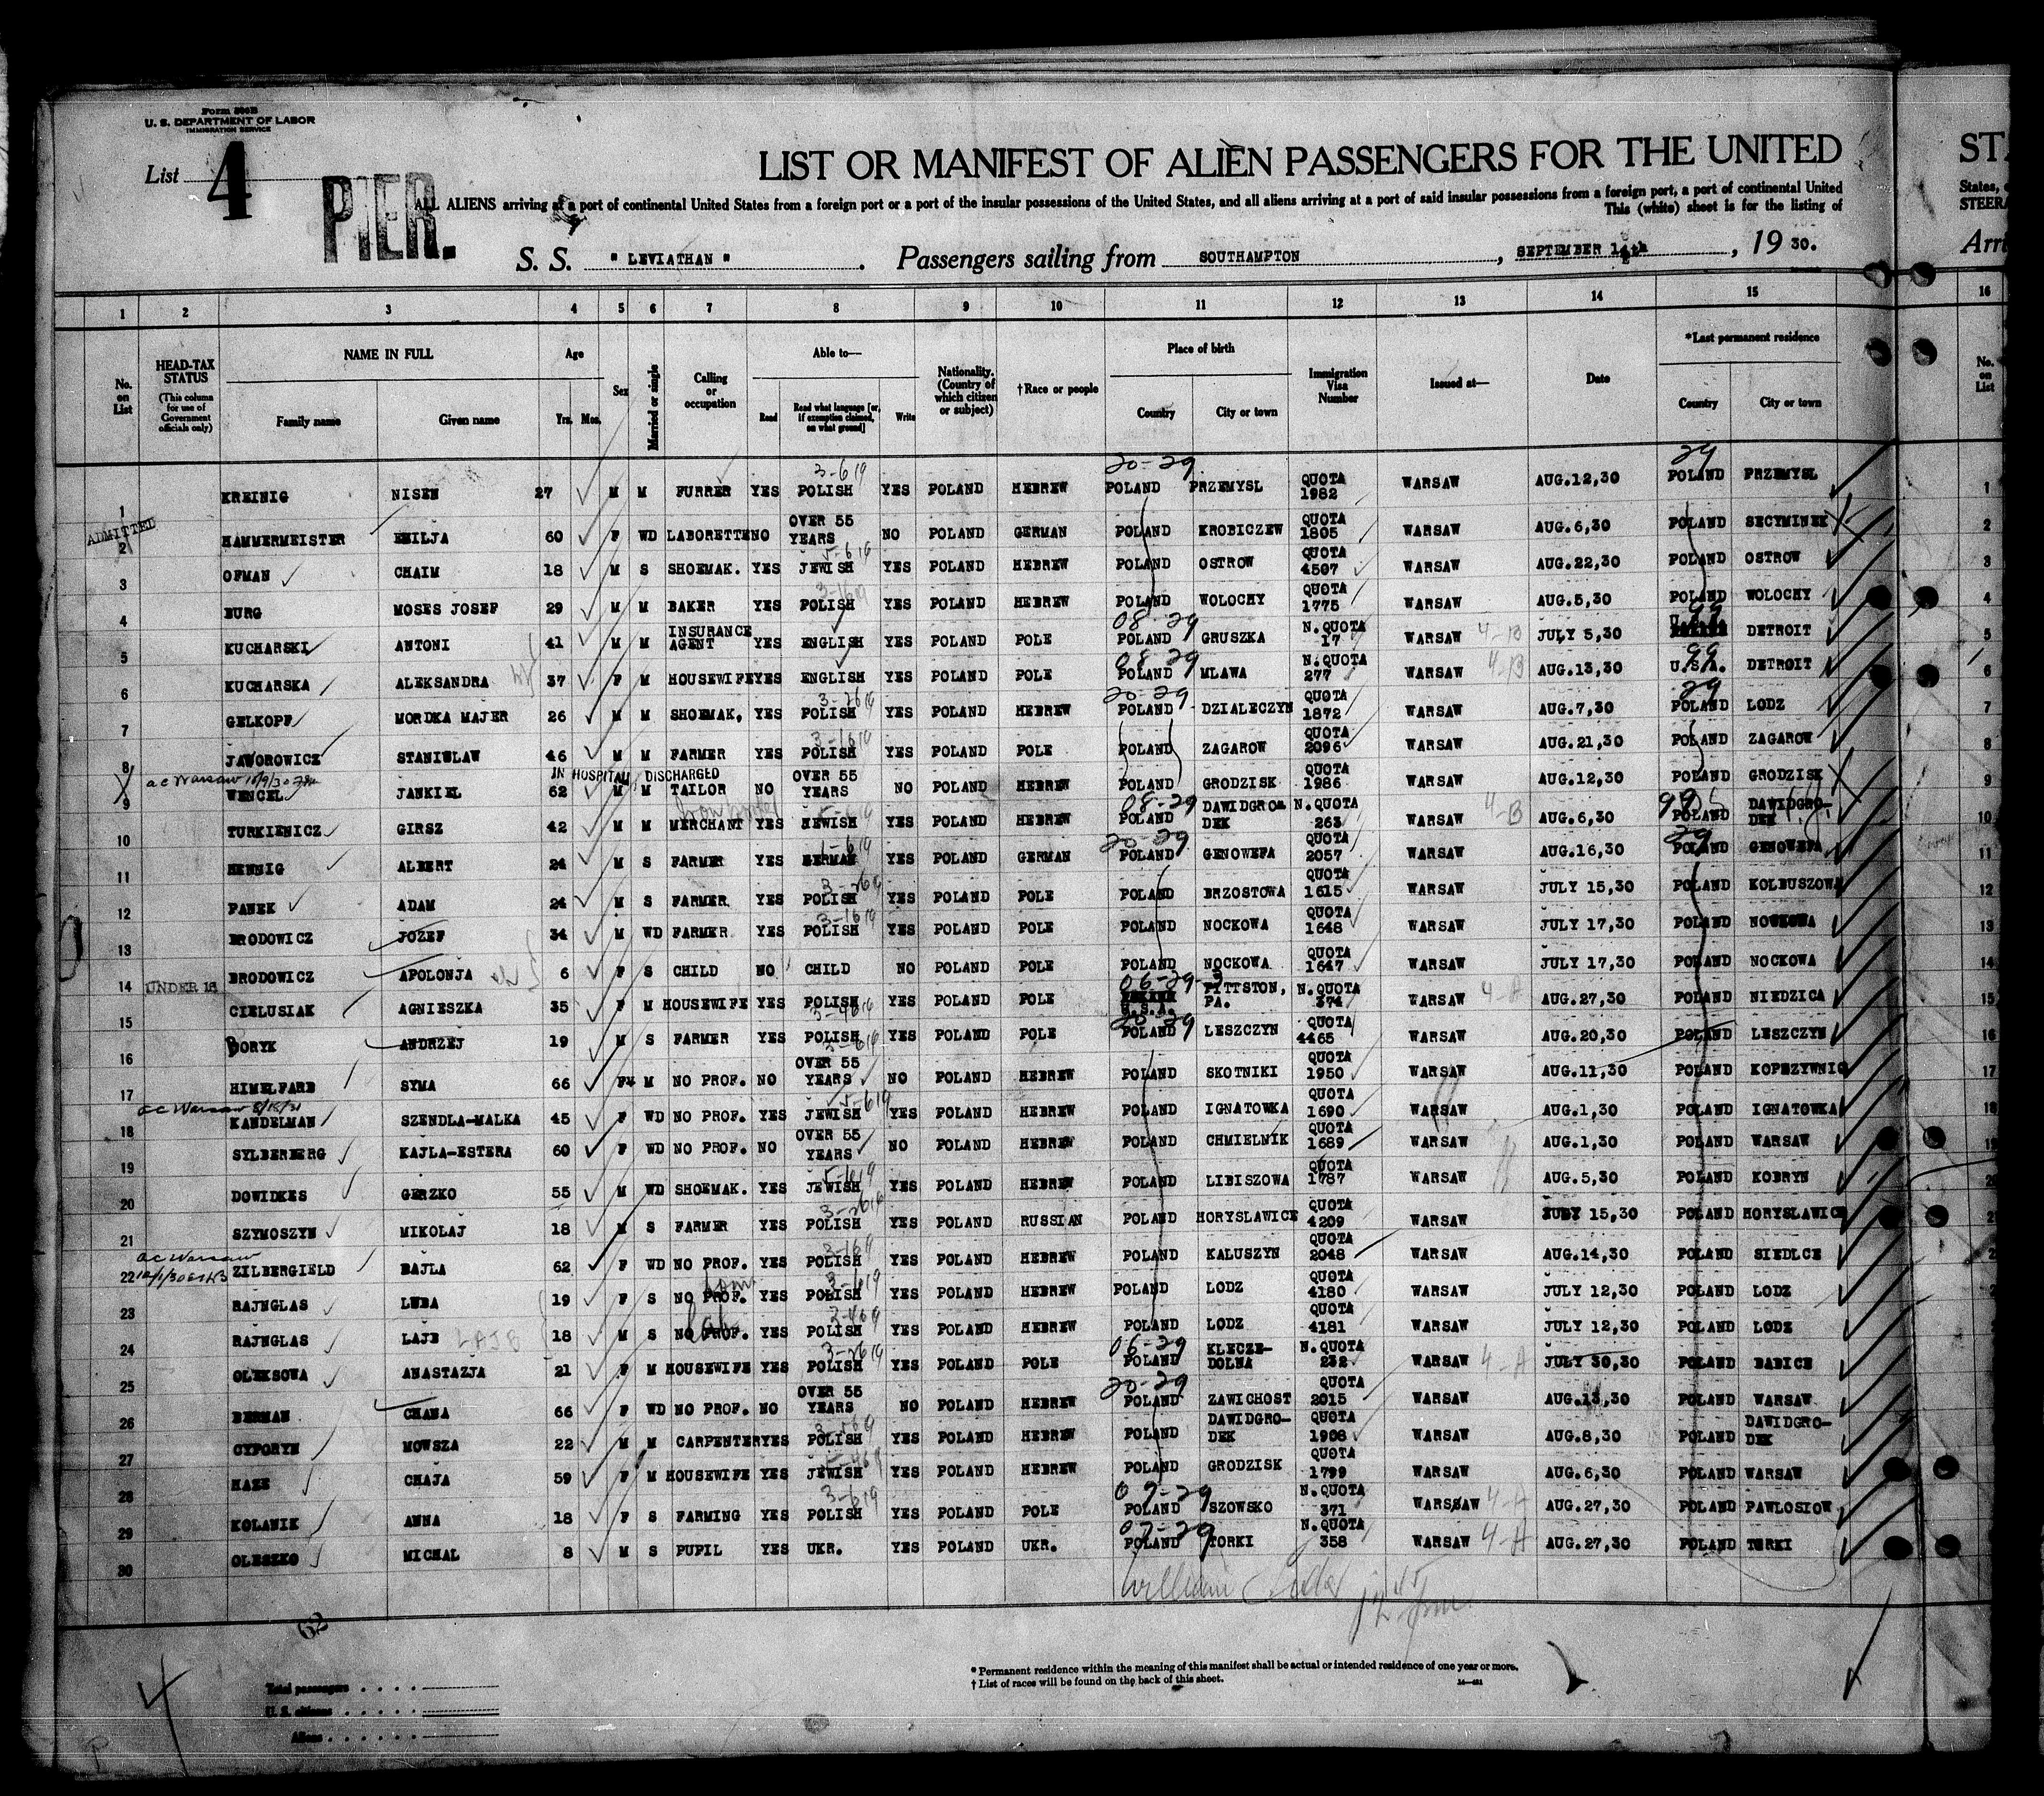 Form 500B
U. S. DEPARTMENT OF LABOR
IMMIGRATION SERVICE
List 4
PIER.
LIST OR MANIFEST OF ALIEN PASSENGERS FOR THE UNITED
ALL ALIENS arriving at a port of continental United States from a foreign port or a port of the insular possessions of the United States, and all aliens arriving at a port of said insular possessions from a foreign port, a port of continental United
This (white) sheet is for the listing of
S. S. " LEVIATHAN " . Passengers sailing from SOUTHAMPTON , SEPTEMBER 14th , 19 30.
STA
States,
STEERA
Arri
1 2 3 4 5 6 7 8 9 10 11 12 13 14 15 16
No. on List
HEAD-TAX STATUS (This column for use of Government officials only)
NAME IN FULL Family name Given name
Age Yrs. Mos.
Sex
Married or single
Calling or occupation
Able to— Read Read what language [or, if exemption claimed, on what ground] Write
Nationality. (Country of which citizen or subject)
†Race or people
Place of birth Country City or town
Immigration Visa Number
Issued at—
Date
*Last permanent residence Country City or town
No. on List
1 KREINIG NISEN 27 M M FURRER YES POLISH YES POLAND HEBREW POLAND PRZEMYSL QUOTA 1982 WARSAW AUG.12,30 POLAND PRZEMYSL 1
ADMITTED
2 HAMMERMEISTER EMILJA 60 F WD LABORETTE NO OVER 55 YEARS NO POLAND GERMAN POLAND KROBICZEW QUOTA 1805 WARSAW AUG.6,30 POLAND SECYMINEK 2
3 OFMAN CHAIM 18 M S SHOEMAK. YES JEWISH YES POLAND HEBREW POLAND OSTROW QUOTA 4507 WARSAW AUG.22,30 POLAND OSTROW 3
4 BURG MOSES JOSEF 29 M M BAKER YES POLISH YES POLAND HEBREW POLAND WOLOCHY QUOTA 1775 WARSAW AUG.5,30 POLAND WOLOCHY 4
5 KUCHARSKI ANTONI 41 M M INSURANCE AGENT YES ENGLISH YES POLAND POLE POLAND GRUSZKA N.QUOTA 17 WARSAW 4-B JULY 5,30 DETROIT 5
6 KUCHARSKA ALEKSANDRA 37 F M HOUSEWIFE YES ENGLISH YES POLAND POLE POLAND MLAWA N.QUOTA 277 WARSAW 4-B AUG.13,30 U.S.A. DETROIT 6
7 GELKOPF MORDKA MAJER 26 M M SHOEMAK, YES POLISH YES POLAND HEBREW POLAND DZIALECZYN QUOTA 1872 WARSAW AUG.7,30 POLAND LODZ 7
8 JAWOROWICZ STANISLAW 46 M M FARMER YES POLISH YES POLAND POLE POLAND ZAGAROW QUOTA 2096 WARSAW AUG.21,30 POLAND ZAGAROW 8
IN HOSPITAL, DISCHARGED
9 WENCEL JANKIEL 62 M M TAILOR NO OVER 55 YEARS NO POLAND HEBREW POLAND GRODZISK QUOTA 1986 WARSAW AUG.12,30 POLAND GRODZISK 9
10 TURKIENICZ GIRSZ 42 M M MERCHANT YES JEWISH YES POLAND HEBREW POLAND DAWIDGRO-DEK N.QUOTA 263 WARSAW 4-B AUG.6,30 POLAND DAWIDGRO-DEK 10
11 HENNIG ALBERT 24 M S FARMER YES GERMAN YES POLAND GERMAN POLAND GENOWEFA QUOTA 2057 WARSAW AUG.16,30 POLAND GENOWEFA 11
12 PANEK ADAM 24 M S FARMER YES POLISH YES POLAND POLE POLAND BRZOSTOWA QUOTA 1615 WARSAW JULY 15,30 POLAND KOLBUSZOWA 12
13 BRODOWICZ JOZEF 34 M WD FARMER YES POLISH YES POLAND POLE POLAND NOCKOWA QUOTA 1648 WARSAW JULY 17,30 POLAND 13
14 UNDER 16 BRODOWICZ APOLONJA 6 F S CHILD NO CHILD NO POLAND POLE POLAND NOCKOWA QUOTA 1647 WARSAW JULY 17,30 POLAND NOCKOWA 14
15 CIELUSIAK AGNIESZKA 35 F M HOUSEWIFE YES POLISH YES POLAND POLE U.S.A. PITTSTON, PA. N.QUOTA 374 WARSAW 4-A AUG.27,30 POLAND NIEDZICA 15
16 BORYK ANDRZEJ 19 M S FARMER YES POLISH YES POLAND POLE POLAND LESZCZYN QUOTA 4465 WARSAW AUG.20,30 POLAND LESZCZYN 16
17 HIMELFARB SYMA 66 F M NO PROF. NO OVER 55 YEARS NO POLAND HEBREW POLAND SKOTNIKI QUOTA 1950 WARSAW AUG.11,30 POLAND KOPRZYWNIC 17
18 KANDELMAN SZENDLA-MALKA 45 F WD NO PROF. YES JEWISH YES POLAND HEBREW POLAND IGNATOWKA QUOTA 1690 WARSAW AUG.1,30 POLAND IGNATOWKA 18
19 SYLBERBERG KAJLA-ESTERA 60 F WD NO PROF. NO OVER 55 YEARS NO POLAND HEBREW POLAND CHMIELNIK QUOTA 1689 WARSAW AUG.1,30 POLAND WARSAW 19
20 DOWIDKES GERZKO 55 M WD SHOEMAK. YES JEWISH YES POLAND HEBREW POLAND LIBISZOWA QUOTA 1787 WARSAW AUG.5,30 POLAND KOBRYN 20
21 SZYMOSZYN MIKOLAJ 18 M S FARMER YES POLISH YES POLAND RUSSIAN POLAND HORYSLAWICE QUOTA 4209 WARSAW JULY 15,30 POLAND HORYSLAWICE
22 ZILBERGIELD BAJLA 62 F WD NO PROF. YES POLISH YES POLAND HEBREW POLAND KALUSZYN QUOTA 2048 WARSAW AUG.14,30 POLAND SIEDLCE
23 RAJNGLAS LUBA 19 F S NO PROF. YES POLISH YES POLAND HEBREW POLAND LODZ QUOTA 4180 WARSAW JULY 12,30 POLAND LODZ
24 RAJNGLAS LAJB LAJB 18 M S NO PROF. YES POLISH YES POLAND HEBREW POLAND LODZ QUOTA 4181 WARSAW JULY 12,30 POLAND LODZ
25 OLEKSOWA ANASTAZJA 21 F M HOUSEWIFE YES POLISH YES POLAND POLE POLAND KLECZE-DOLNA N.QUOTA 232 WARSAW 4-A JULY 30,30 POLAND BABICE
26 BERMAN CHANA 66 F WD NO PROF. NO OVER 55 YEARS NO POLAND HEBREW POLAND ZAWICHOST QUOTA 2015 WARSAW AUG.13,30 POLAND WARSAW
27 CYPORYN MOWSZA 22 M M CARPENTER YES POLISH YES POLAND HEBREW POLAND DAWIDGRO-DEK QUOTA 1908 WARSAW AUG.8,30 POLAND DAWIDGRO-DEK
28 HAZE CHAJA 59 F M HOUSEWIFE YES JEWISH YES POLAND HEBREW POLAND GRODZISK QUOTA 1799 WARSAW AUG.6,30 POLAND WARSAW
29 KOLANIK ANNA 18 F S FARMING YES POLISH YES POLAND POLE POLAND SZOWSKO N.QUOTA 371 WARSSAW 4-A AUG.27,30 POLAND PAWLOSIOW
30 OLESZKO MICHAL 8 M S PUPIL YES UKR. YES POLAND UKR. POLAND TORKI N.QUOTA 358 WARSAW 4-A AUG.27,30 POLAND TORKI
62
4
Total passengers
U. S. citizens
Aliens
* Permanent residence within the meaning of this manifest shall be actual or intended residence of one year or more.
† List of races will be found on the back of this sheet.